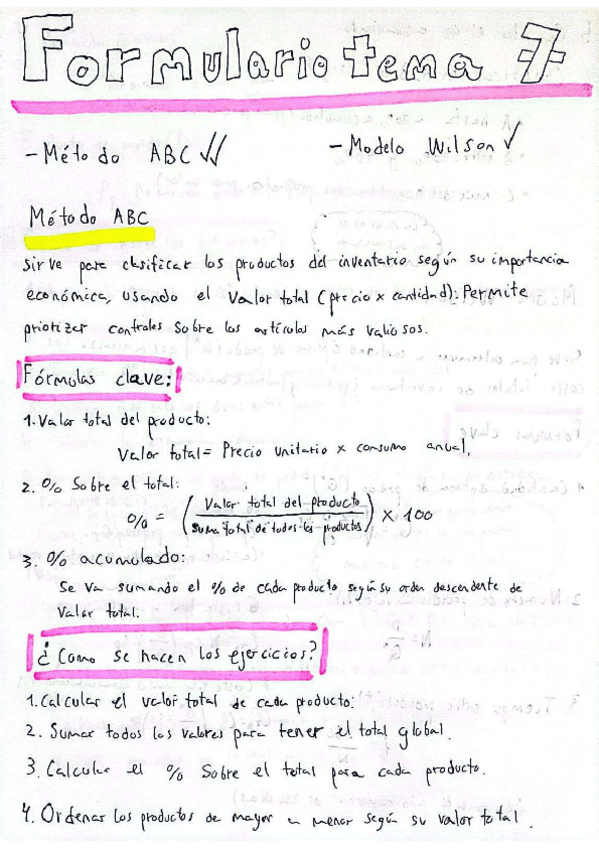 Formulario tema 7
- Método ABC
- Modelo Wilson
Método ABC
Sirve para clasificar los productos del inventario según su importancia
económica, usando el valor total (precio x cantidad). Permite
priorizar controles sobre los artículos más valiosos.
Fórmulas clave:
1. Valor total del producto:
Valor total = Precio unitario x consumo anual.
2. % Sobre el total:
% = (Valor total del producto / suma total de todos los productos) x 100
3. % acumulado:
Se va sumando el % de cada producto según su orden descendente de
valor total.
¿Como se hacen los ejercicios?
1. Calcular el valor total de cada producto.
2. Sumar todos los valores para tener el total global.
3. Calcular el % Sobre el total para cada producto.
4. Ordenar los productos de mayor a menor según su valor total.